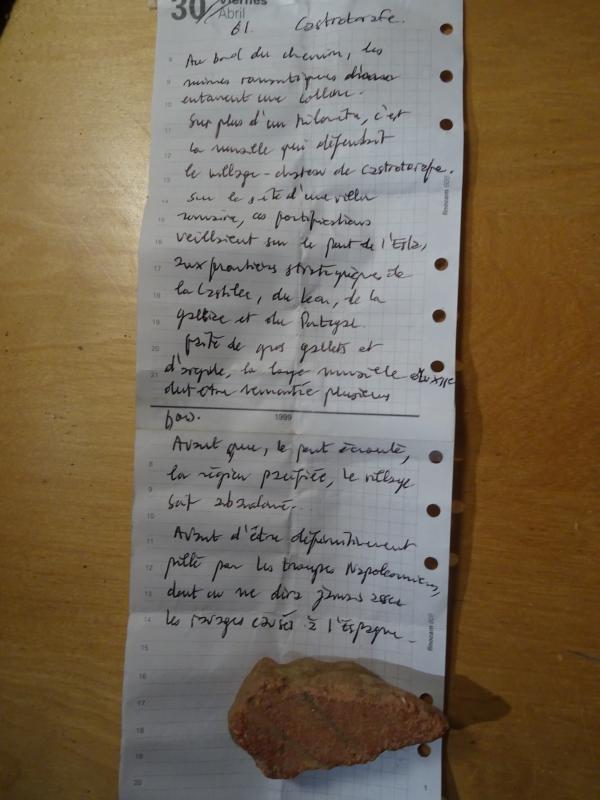 30 Viernes
Abril
61. Castrotorafe.
Au bord du chemin, les
ruines romantiques
entourent une colline.
Sur plus d'un kilomètre, c'est
la muraille qui défendait
le village-chateau de Castrotorafe.
Sur le site d'une villa
romaine, ces fortifications
veillaient sur le pont de l'Esla,
aux frontières stratégiques de
la Castille, du Leon, de la
Galice et du Portugal.
faite de gros gallets et
d'argile, la large muraille
dut être remontée plusieurs
1999
fois.
Avant que, le pont écroulé,
la région pacifiée, le village
soit abandonné.
Avant d'être définitivement
pillé par les troupes Napoléoniennes,
dont on ne dira jamais assez
les ravages causés à l'Espagne.
8
9
10
11
12
13
14
15
16
17
18
19
20
finocam
1